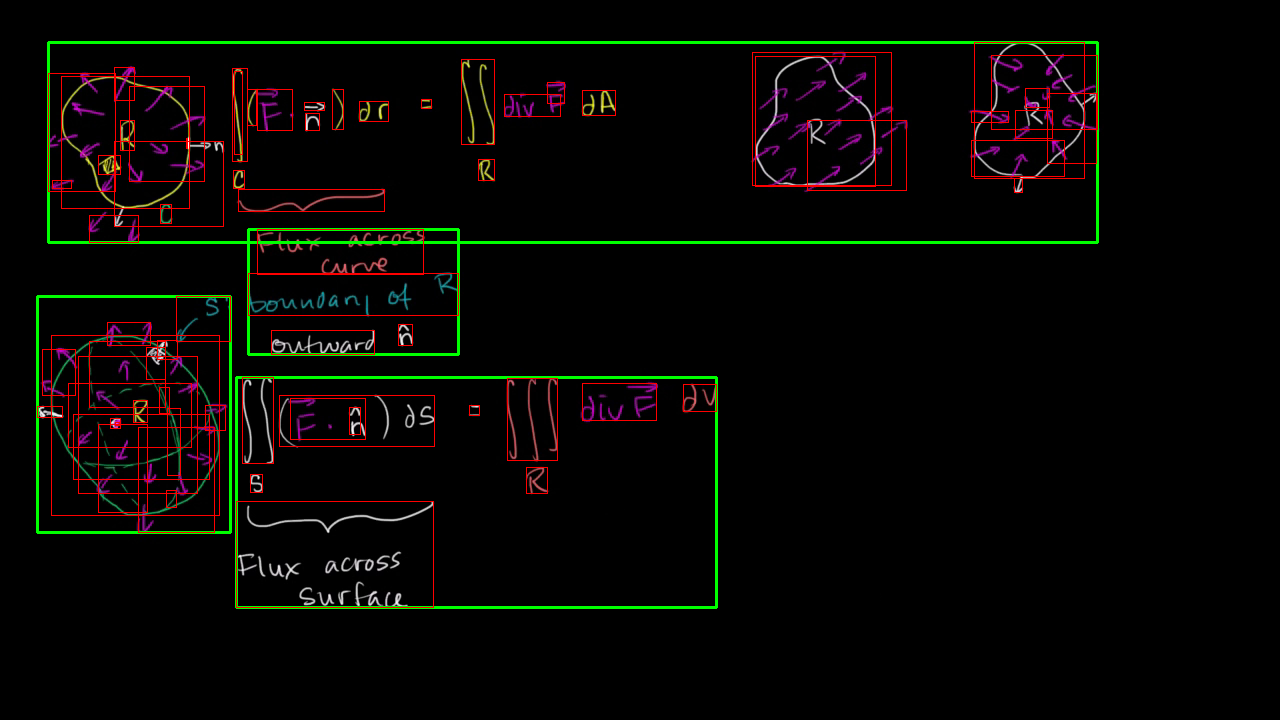 R → n C
∫_C (F⃗ · n⃗) dr = ∬_R div F⃗ dA
R
R
Flux across
curve
boundary of R
outward n̂
S
R
∬_S (F⃗ · n̂) dS = ∭_R div F⃗ dV
Flux across
surface